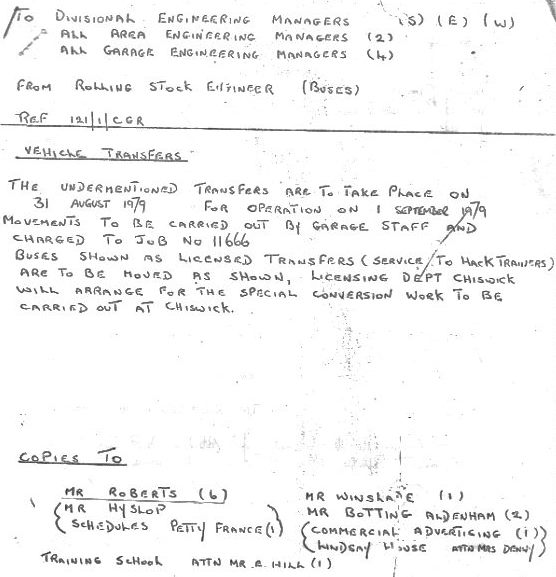 To Divisional Engineering Managers (S) (E) (W)
All Area Engineering Managers (2)
All Garage Engineering Managers (4)
From Rolling Stock Engineer (Buses)
Ref 121/1/CGR
Vehicle Transfers
The undermentioned transfers are to take place on
31 August 1979 for operation on 1 September 1979
Movements to be carried out by garage staff and
charged to Job No 11666
Buses shown as licensed transfers (service to hack trainers)
are to be moved as shown, licensing dept Chiswick
will arrange for the special conversion work to be
carried out at Chiswick.
Copies To
Mr Roberts (6)
Mr Hyslop
Schedules Petty France (1)
Training School attn Mr R. Hill (1)
Mr Winskade (1)
Mr Botting Aldenham (2)
(Commercial Advertising (1))
Lindsay House attn Mrs Denny